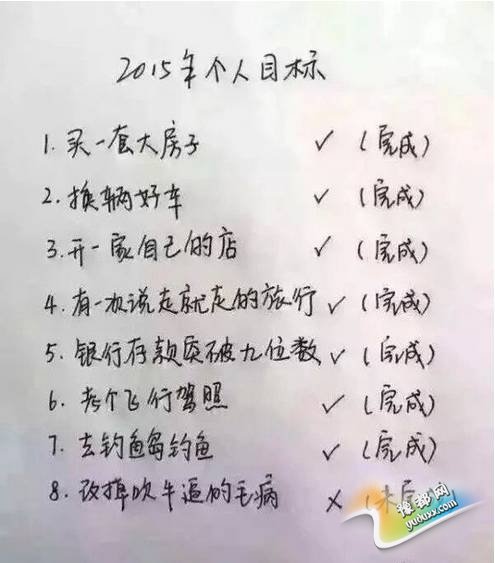 2015年个人目标
1.买一套大房子 ✓ (完成)
2.换辆好车 ✓ (完成)
3.开一家自己的店 ✓ (完成)
4.有一次说走就走的旅行 ✓ (完成)
5.银行存款突破九位数 ✓ (完成)
6.考个飞行驾照 ✓ (完成)
7.去钓鱼岛钓鱼 ✓ (完成)
8.改掉吹牛逼的毛病 × (未
youxx.com